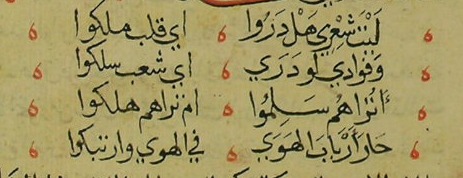 لَيْتَ شِعْرِي هَلْ دَرَوا اي قلب ملكوا
وَفوَادي لَودَرَي اي شعب سلكوا
أتُرَاهُم سَلِمُوا ام تراهم هلكوا
حَارَ أَرْبَابَ الهَوَي في الهوي وارتبكوا